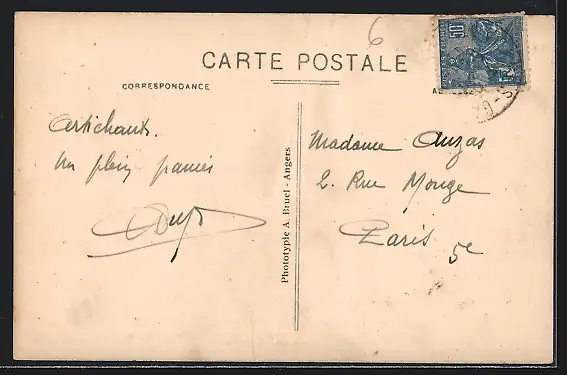 6
CARTE POSTALE
CORRESPONDANCE
50
Artichauts.
Un plein panier
Madame Auzas
2. Rue Monge
Paris 5e
Phototypie A. Bruel - Angers